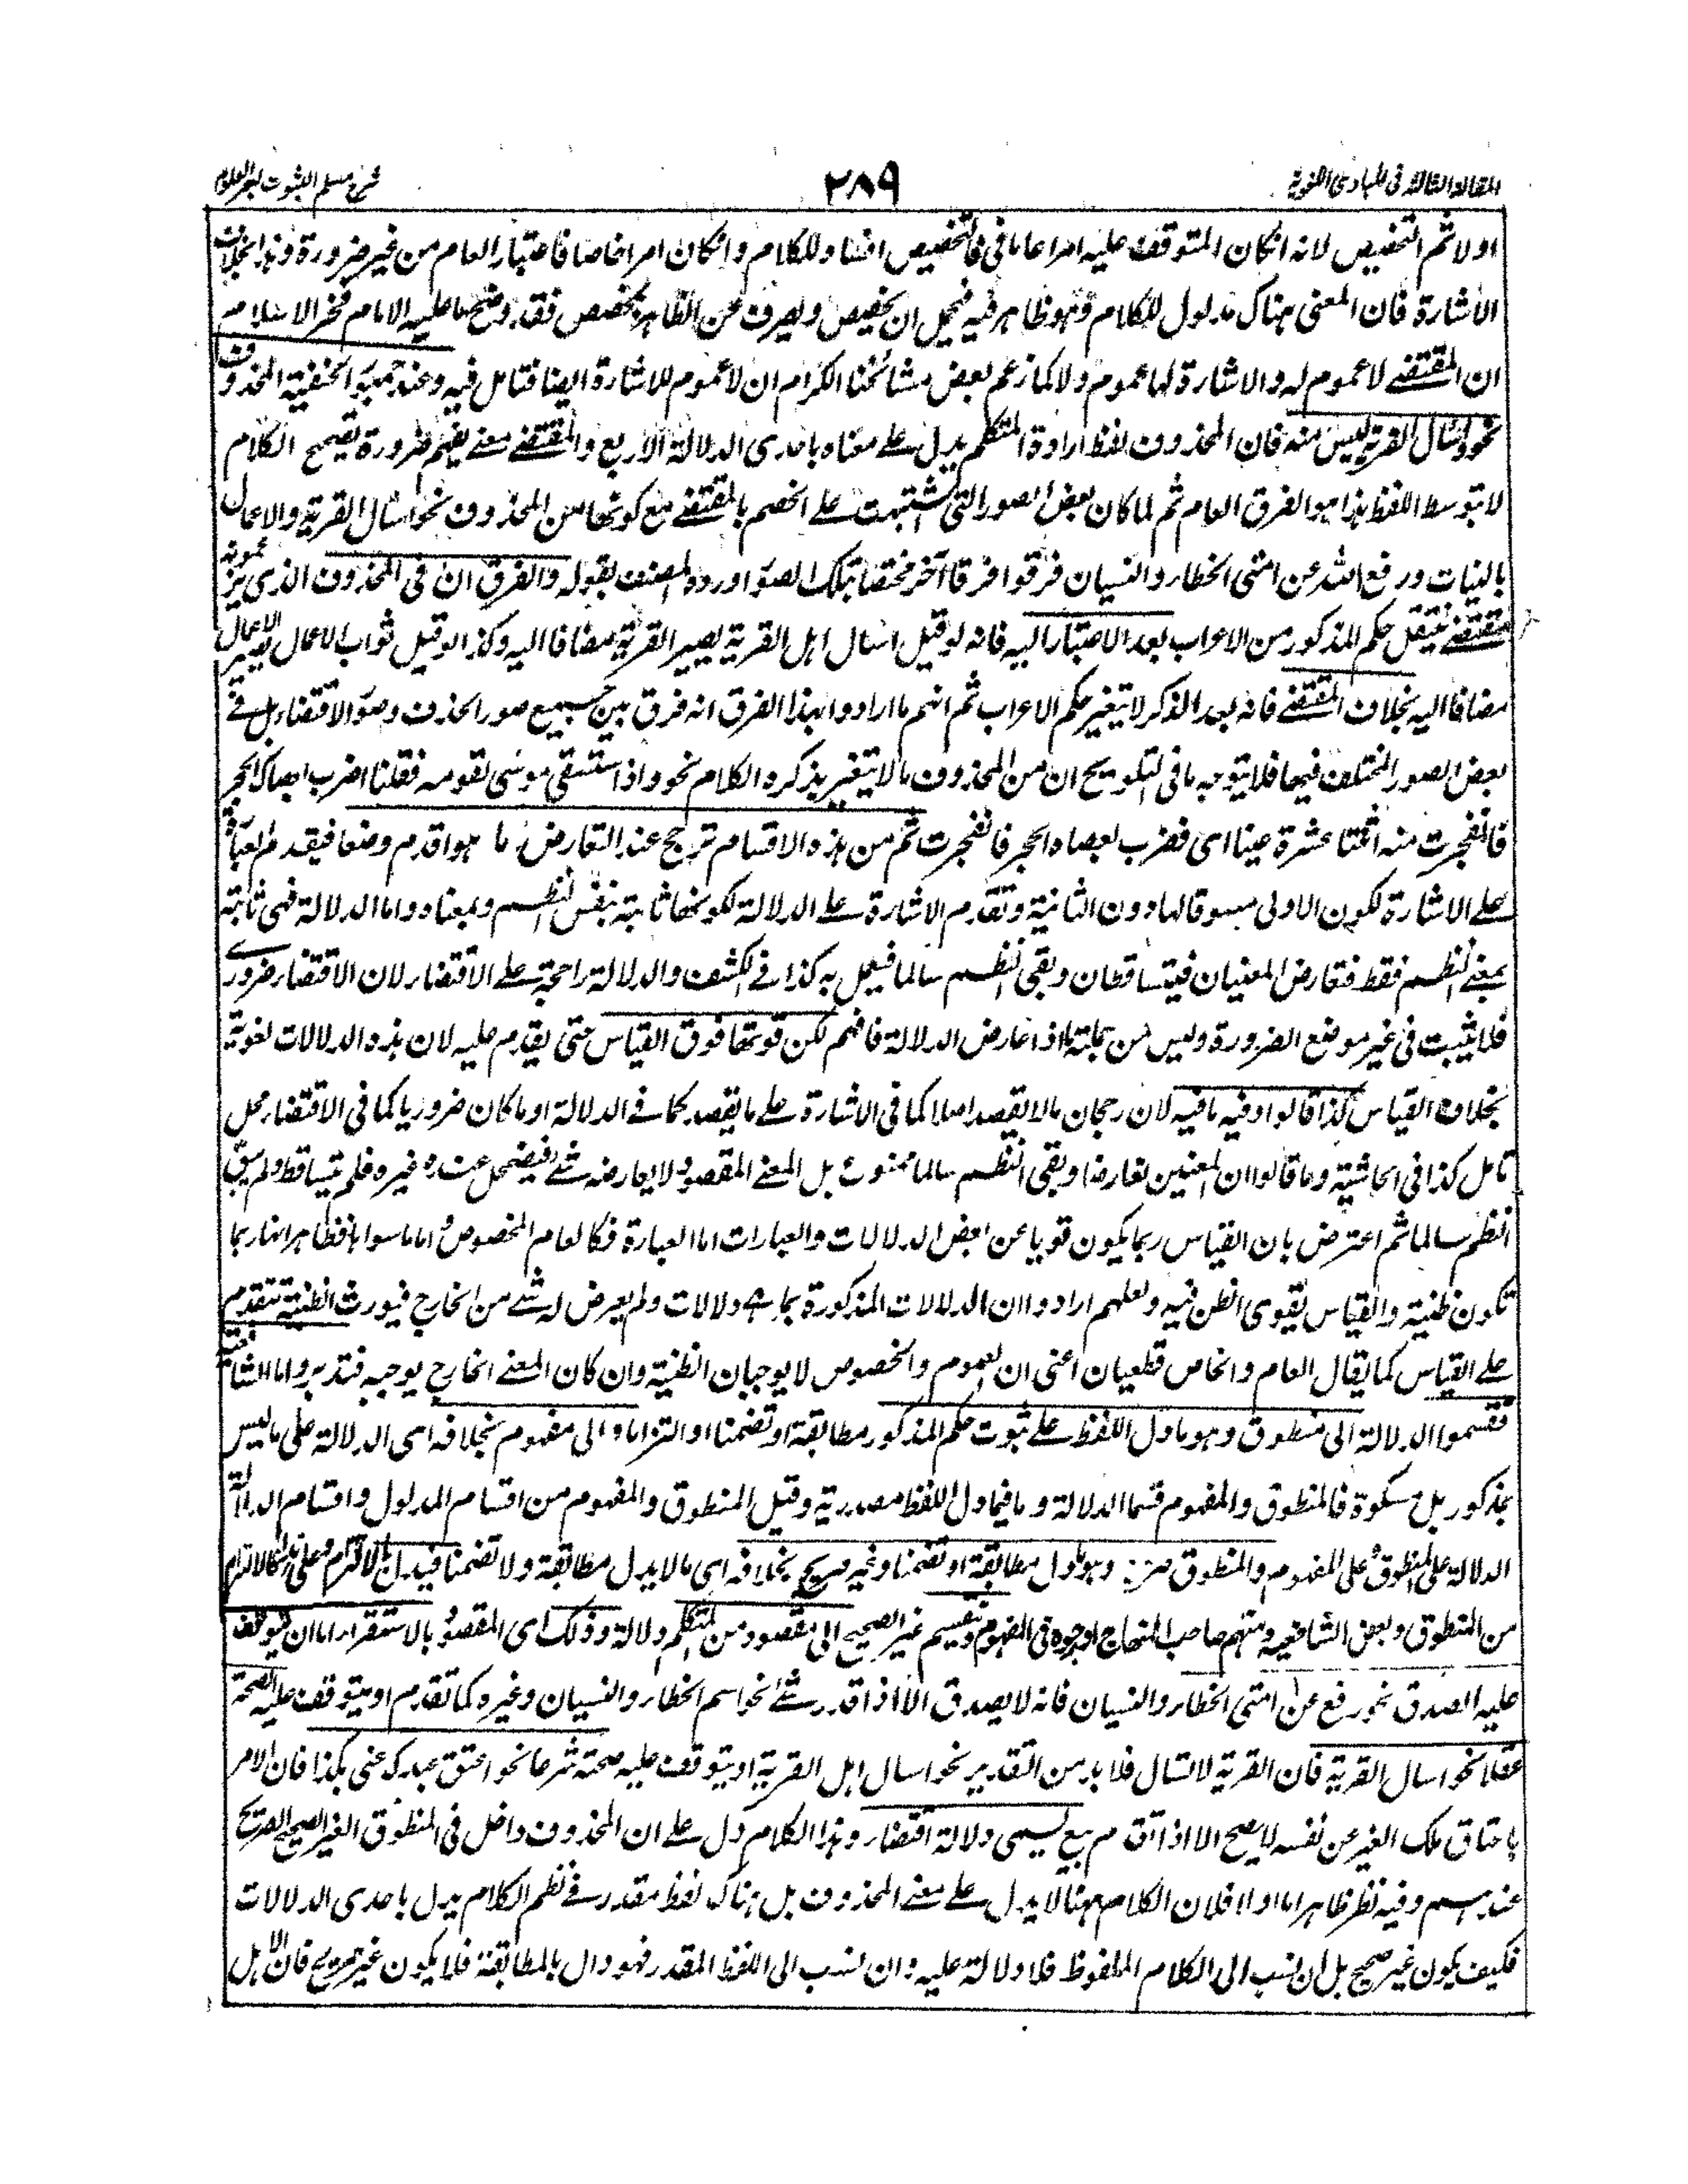 المقالة الثالثة فى المبادى اللغوية
٢٨٩
شرح مسلم الثبوت لبحر العلوم
اولا ثم التخصيص لانه انكان المتوقف عليه امرا عاما فى فالتخصيص افساد للكلام وانكان امرا خاصا فاعتبار العام من غير ضرورة وهذا بخلاف
الاشارة فان المعنى هناك مدلول للكلام وهو ظاهر فيه فيحمل ان يخصص ويصرف عن الظاهر بمخصص فقد وضح ما عليه الامام فخر الاسلام
ان المقتضى لا عموم له والاشارة لها عموم ولا كما زعم بعض مشائخنا الكرام ان لا عموم للاشارة ايضا فتامل فيه وعند جمهور الحنفية المحذوف
نحو واسال القرية ليس منه فان المحذوف لفظ اراده المتكلم يدل على معناه باحدى الدلالة الاربع والمقتضى معنى يفهم ضرورة تصحيح الكلام
لا بتوسط اللفظ هذا هو الفرق العام ثم لما كان بعض الصور التى اشتبهت على الخصم بالمقتضى مع كونها من المحذوف نحو اسال القرية والاعمال
بالنيات ورفع الله عن امتى الخطاء والنسيان فرقوا فرقا آخر مختصا بتلك الصور اورده المصنف بقوله والفرق ان فى المحذوف الذى يزعمونه
مقتضى ينتقل حكم المذكور من الاعراب بعد الاعتبار اليه فانه لو قيل اسال اهل القرية يصير القرية مضافا اليه وكذا لو قيل ثواب الاعمال يصير الاعمال
مضافا اليه بخلاف المقتضى فانه بعد الذكر لا يتغير حكم الاعراب ثم انهم ما ارادوا بهذا الفرق انه فرق بين جميع صور الحذف وصور الاقتضاء بل فى
بعض الصور المختلف فيها فلا يتوجه ما فى التلويح ان من المحذوف ما لا يتغير بذكره الكلام نحو واذ استسقى موسى لقومه فقلنا اضرب بعصاك الحجر
فانفجرت منه اثنتا عشرة عينا اى فضرب بعصاه الحجر فانفجرت ثم من هذه الاقسام ترجح عند التعارض ما هو اقدم وضعا فيقدم العبارة
على الاشارة لكون الاولى مسوقا لها دون الثانية وتقدم الاشارة على الدلالة لكونها ثابتة بنفس النظم وبمعناه واما الدلالة فهى ثابتة
بمعنى النظم فقط فتعارض المعنيان فيتساقطان وبقى النظم سالما فيعمل به كذا فى الكشف والدلالة راجحة على الاقتضاء لان الاقتضاء ضرورى
فلا يثبت فى غير موضع الضرورة وليس من جملتها اذا عارض الدلالة فافهم لكن قوتها فوق القياس حتى يقدم عليه لان هذه الدلالات لغوية
بخلاف القياس كذا قالوا وفيه ما فيه لان رجحان ما لا يقصد اصلا كما فى الاشارة على ما يقصد كما فى الدلالة او ما كان ضروريا كما فى الاقتضاء محل
تامل كذا فى الحاشية وما قالوا ان المعنيين تعارضا وبقى النظم سالما ممنوع بل المعنى المقصود لا يعارضه شئ فيضمحل عنده غيره فلم يتساقط ولم يبق
النظم سالما ثم اعترض بان القياس ربما يكون قويا عن بعض الدلالات والعبارات اما العبارة فكالعام المخصوص واما ما سواها فظاهر انها ربما
تكون ظنية والقياس يقوى الظن فيه ولعلهم ارادوا ان الدلالات المذكورة بما هى دلالات ولم يعرض له شئ من الخارج فيورث الظنية تتقدم
على القياس كما يقال العام والخاص قطعيان اعنى ان العموم والخصوص لا يوجبان الظنية وان كان المعنى الخارج يوجبه فتدبر واما الشافعية
فقسموا الدلالة الى منطوق وهو ما دل اللفظ على ثبوت حكم المذكور مطابقة او تضمنا او التزاما والى مفهوم بخلافه اى الدلالة على ما ليس
بمذكور بل مسكوة فالمنطوق والمفهوم قسما الدلالة وما فيما دل اللفظ مصدرية وقيل المنطوق والمفهوم من اقسام المدلول واقسام الدلالة
الدلالة على المنطوق وعلى المفهوم والمنطوق صريح وهو ما دل مطابقة او تضمنا وغير صريح بخلافه اى ما لا يدل مطابقة ولا تضمنا فيدل بالالتزام وعلى هذا فالالتزام
من المنطوق وبعض الشافعية ومنهم صاحب المنهاج اوجوه فى المفهوم وتقسيم غير الصحيح الى مقصود من المتكلم دلالة وذلك اى المقصود بالاستقراء اما ان يتوقف
عليه الصدق نحو رفع عن امتى الخطاء والنسيان فانه لا يصدق الا اذا قدر شئ نحو اسم الخطاء والنسيان وغيره كما تقدم او يتوقف عليه الصحة
عقلا نحو اسال القرية فان القرية لا تسال فلا بد من التقدير نحو اسال اهل القرية او يتوقف عليه صحته شرعا نحو اعتق عبدك عنى بكذا فان الامر
باعتاق ملك الغير عن نفسه لا يصح الا اذا تقدم بيع يسمى دلالة اقتضاء وهذا الكلام دل على ان المحذوف داخل فى المنطوق الغير الصحيح الصريح
عندهم وفيه نظر ظاهر اما اولا فلان الكلام ههنا لا يدل على معنى المحذوف بل هناك لفظ مقدر فى نظم الكلام يدل باحدى الدلالات
فكيف يكون غير صحيح بل ان نسب الى الكلام الملفوظ فلا دلالة عليه وان نسب الى اللفظ المقدر فهو دال بالمطابقة فلا يكون غير صريح فان الاهل